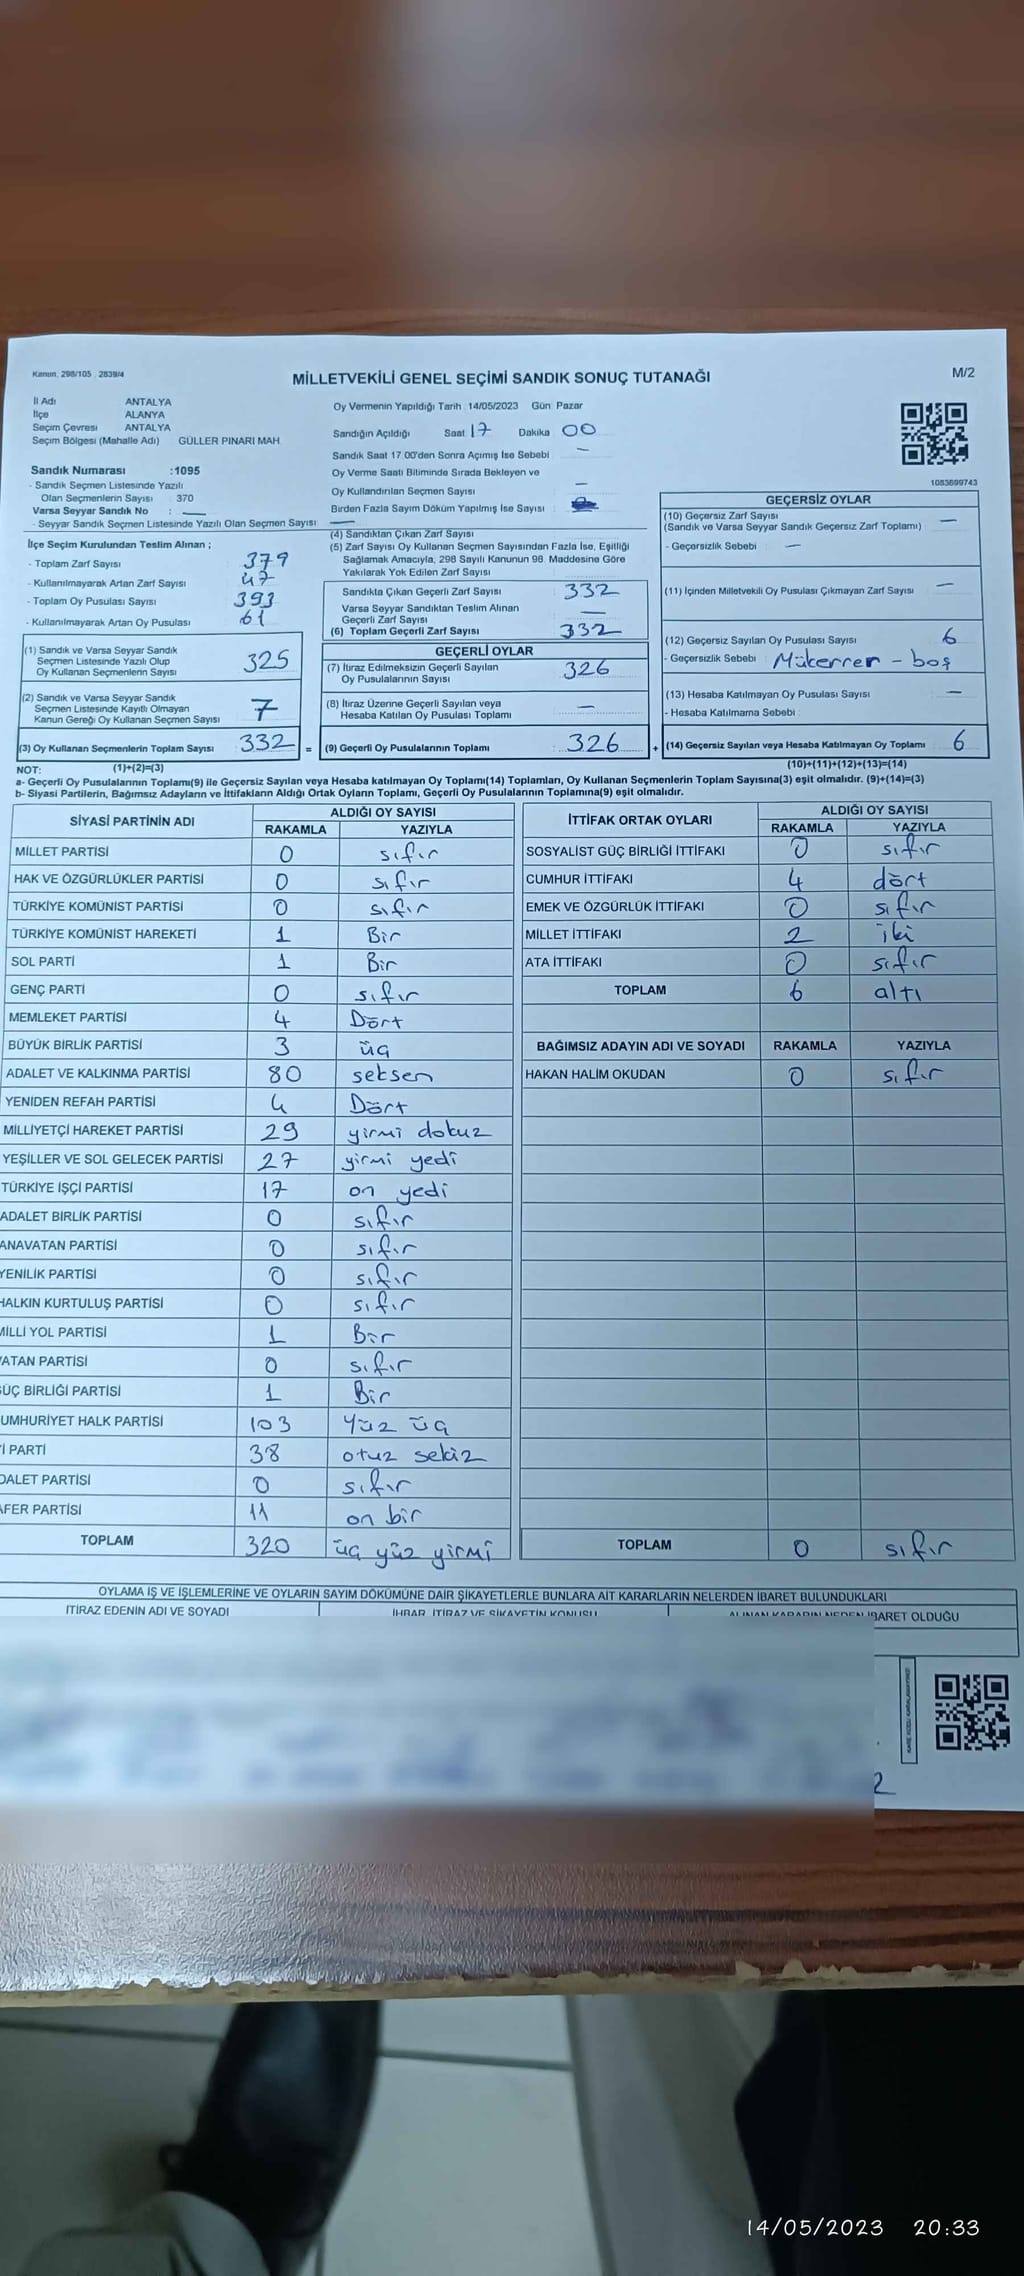 Kanun: 298/105 2839/4
MİLLETVEKİLİ GENEL SEÇİMİ SANDIK SONUÇ TUTANAĞI
M/2
İl Adı ANTALYA
İlçe ALANYA
Seçim Çevresi ANTALYA
Seçim Bölgesi (Mahalle Adı) GÜLLER PINARI MAH.
Oy Vermenin Yapıldığı Tarih 14/05/2023 Gün Pazar
Sandığın Açıldığı Saat 17 Dakika 00
Sandık Saat 17:00'den Sonra Açımış İse Sebebi —
Oy Verme Saati Bitiminde Sırada Bekleyen ve
Oy Kullandırılan Seçmen Sayısı —
Birden Fazla Sayım Döküm Yapılmış İse Sayısı :
Sandık Numarası :1095
- Sandık Seçmen Listesinde Yazılı
Olan Seçmenlerin Sayısı : 370
Varsa Seyyar Sandık No : —
- Seyyar Sandık Seçmen Listesinde Yazılı Olan Seçmen Sayısı : —
1083699743
İlçe Seçim Kurulundan Teslim Alınan ;
- Toplam Zarf Sayısı 379
- Kullanılmayarak Artan Zarf Sayısı 47
- Toplam Oy Pusulası Sayısı 393
- Kullanılmayarak Artan Oy Pusulası 61
(1) Sandık ve Varsa Seyyar Sandık
Seçmen Listesinde Yazılı Olup
Oy Kullanan Seçmenlerin Sayısı 325
(2) Sandık ve Varsa Seyyar Sandık
Seçmen Listesinde Kayıtlı Olmayan
Kanun Gereği Oy Kullanan Seçmen Sayısı 7
(3) Oy Kullanan Seçmenlerin Toplam Sayısı 332 =
(1)+(2)=(3)
(4) Sandıktan Çıkan Zarf Sayısı
(5) Zarf Sayısı Oy Kullanan Seçmen Sayısından Fazla İse, Eşitliği
Sağlamak Amacıyla, 298 Sayılı Kanunun 98. Maddesine Göre
Yakılarak Yok Edilen Zarf Sayısı
Sandıkta Çıkan Geçerli Zarf Sayısı 332
Varsa Seyyar Sandıktan Teslim Alınan
Geçerli Zarf Sayısı —
(6) Toplam Geçerli Zarf Sayısı 332
GEÇERLİ OYLAR
(7) İtiraz Edilmeksizin Geçerli Sayılan
Oy Pusulalarının Sayısı 326
(8) İtiraz Üzerine Geçerli Sayılan veya
Hesaba Katılan Oy Pusulası Toplamı —
(9) Geçerli Oy Pusulalarının Toplamı : 326 +
GEÇERSİZ OYLAR
(10) Geçersiz Zarf Sayısı
(Sandık ve Varsa Seyyar Sandık Geçersiz Zarf Toplamı) —
- Geçersizlik Sebebi : —
(11) İçinden Milletvekili Oy Pusulası Çıkmayan Zarf Sayısı —
(12) Geçersiz Sayılan Oy Pusulası Sayısı 6
- Geçersizlik Sebebi : Mükerrer - boş
(13) Hesaba Katılmayan Oy Pusulası Sayısı —
- Hesaba Katılmama Sebebi :
(14) Geçersiz Sayılan veya Hesaba Katılmayan Oy Toplamı 6
(10)+(11)+(12)+(13)=(14)
NOT:
a- Geçerli Oy Pusulalarının Toplamı(9) ile Geçersiz Sayılan veya Hesaba katılmayan Oy Toplamı(14) Toplamları, Oy Kullanan Seçmenlerin Toplam Sayısına(3) eşit olmalıdır. (9)+(14)=(3)
b- Siyasi Partilerin, Bağımsız Adayların ve İttifakların Aldığı Ortak Oyların Toplamı, Geçerli Oy Pusulalarının Toplamına(9) eşit olmalıdır.
SİYASİ PARTİNİN ADI ALDIĞI OY SAYISI
RAKAMLA YAZIYLA
MİLLET PARTİSİ 0 sıfır
HAK VE ÖZGÜRLÜKLER PARTİSİ 0 sıfır
TÜRKİYE KOMÜNİST PARTİSİ 0 sıfır
TÜRKİYE KOMÜNİST HAREKETİ 1 Bir
SOL PARTİ 1 Bir
GENÇ PARTİ 0 sıfır
MEMLEKET PARTİSİ 4 Dört
BÜYÜK BİRLİK PARTİSİ 3 üç
ADALET VE KALKINMA PARTİSİ 80 seksen
YENİDEN REFAH PARTİSİ 4 Dört
MİLLİYETÇİ HAREKET PARTİSİ 29 yirmi dokuz
YEŞİLLER VE SOL GELECEK PARTİSİ 27 yirmi yedi
TÜRKİYE İŞÇİ PARTİSİ 17 on yedi
ADALET BİRLİK PARTİSİ 0 sıfır
ANAVATAN PARTİSİ 0 sıfır
YENİLİK PARTİSİ 0 sıfır
HALKIN KURTULUŞ PARTİSİ 0 sıfır
MİLLİ YOL PARTİSİ 1 Bir
ATAN PARTİSİ 0 sıfır
ÜÇ BİRLİĞİ PARTİSİ 1 Bir
UMHURİYET HALK PARTİSİ 103 Yüz üç
İ PARTİ 38 otuz sekiz
DALET PARTİSİ 0 sıfır
AFER PARTİSİ 11 on bir
TOPLAM 320 üç yüz yirmi
İTTİFAK ORTAK OYLARI ALDIĞI OY SAYISI
RAKAMLA YAZIYLA
SOSYALİST GÜÇ BİRLİĞİ İTTİFAKI 0 sıfır
CUMHUR İTTİFAKI 4 dört
EMEK VE ÖZGÜRLÜK İTTİFAKI 0 sıfır
MİLLET İTTİFAKI 2 iki
ATA İTTİFAKI 0 sıfır
TOPLAM 6 altı
BAĞIMSIZ ADAYIN ADI VE SOYADI RAKAMLA YAZIYLA
HAKAN HALİM OKUDAN 0 sıfır
TOPLAM 0 sıfır
OYLAMA İŞ VE İŞLEMLERİNE VE OYLARIN SAYIM DÖKÜMÜNE DAİR ŞİKAYETLERLE BUNLARA AİT KARARLARIN NELERDEN İBARET BULUNDUKLARI
İTİRAZ EDENİN ADI VE SOYADI İHBAR, İTİRAZ VE ŞİKAYETİN KONUSU ALINAN KARARIN NEDEN İBARET OLDUĞU
2
14/05/2023 20:33